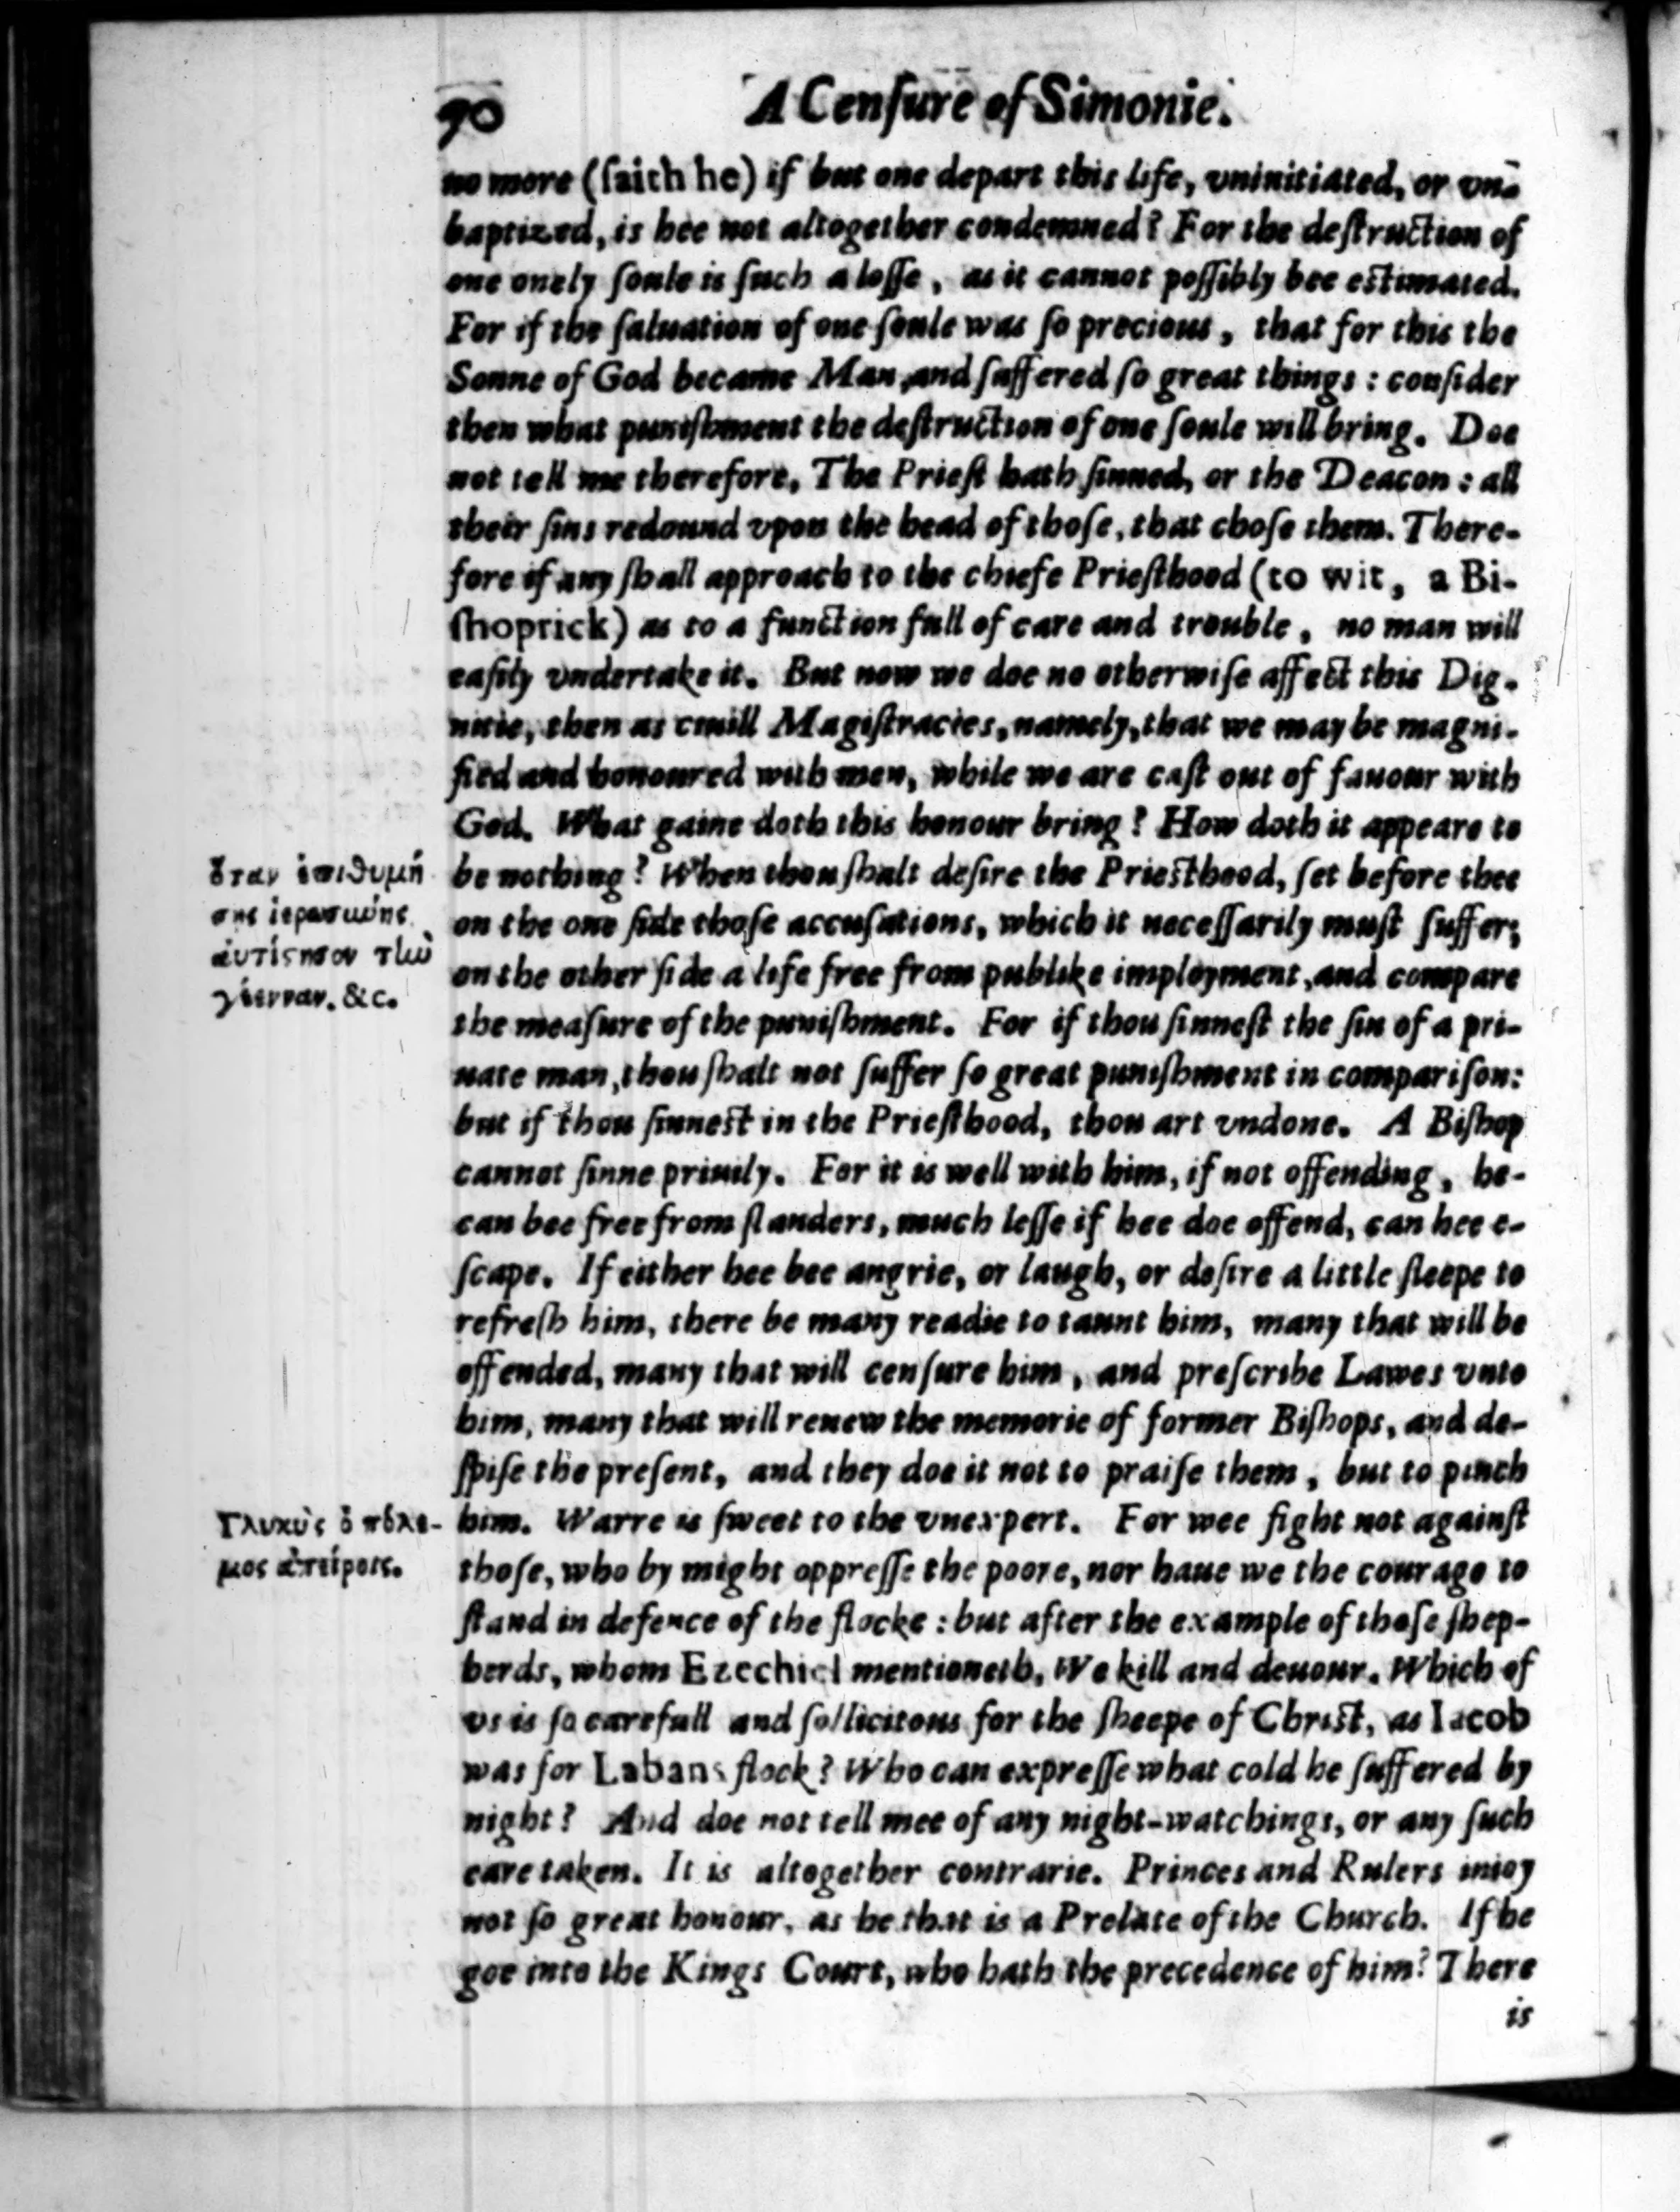 90
A Cenſure of Simonie.
no more (ſaith he) if but one depart this life, vninitiated, or vn-
baptized, is hee not altogether condemned? For the deſtruction of
one onely ſoule is ſuch a loſſe, as it cannot poſſibly bee eſtimated.
For if the ſaluation of one ſoule was ſo precious, that for this the
Sonne of God became Man, and ſuffered ſo great things: conſider
then what puniſhment the deſtruction of one ſoule will bring. Doe
not tell me therefore, The Prieſt hath ſinned, or the Deacon: all
their ſins redound vpon the head of thoſe, that choſe them. There-
fore if any ſhall approach to the chiefe Prieſthood (to wit, a Bi-
ſhoprick) as to a function full of care and trouble, no man will
eaſily vndertake it. But now we doe no otherwiſe affect this Dig-
nitie, then as ciuill Magiſtracies, namely, that we may be magni-
fied and honoured with men, while we are caſt out of fauour with
God. What gaine doth this honour bring? How doth it appeare to
be nothing? When thou ſhalt deſire the Prieſthood, ſet before thee
on the one ſide thoſe accuſations, which it neceſſarily muſt ſuffer;
on the other ſide a life free from publike imployment, and compare
the meaſure of the puniſhment. For if thou ſinneſt the ſin of a pri-
uate man, thou ſhalt not ſuffer ſo great puniſhment in compariſon:
but if thou ſinneſt in the Prieſthood, thou art vndone. A Biſhop
cannot ſinne priuily. For it is well with him, if not offending, he-
can bee free from ſlanders, much leſſe if hee doe offend, can hee e-
ſcape. If either hee bee angrie, or laugh, or deſire a little ſleepe to
refreſh him, there be many readie to taunt him, many that will be
offended, many that will cenſure him, and preſcribe Lawes vnto
him, many that will renew the memorie of former Biſhops, and de-
ſpiſe the preſent, and they doe it not to praiſe them, but to pinch
him. Warre is ſweet to the vnexpert. For wee fight not againſt
thoſe, who by might oppreſſe the poore, nor haue we the courage to
ſtand in defence of the flocke: but after the example of thoſe ſhep-
herds, whom Ezechiel mentioneth, We kill and deuour. Which of
vs is ſo carefull and ſollicitous for the ſheepe of Chriſt, as Iacob
was for Labans flock? Who can expreſſe what cold he ſuffered by
night? And doe not tell mee of any night-watchings, or any ſuch
care taken. It is altogether contrarie. Princes and Rulers inioy
not ſo great honour, as he that is a Prelate of the Church. If he
goe into the Kings Court, who hath the precedence of him? There
is
ὅταν ἐπιθυμή
σῃς ἱερωσύνης
ἀντίστησον τὴν
γέενναν. &c.
Γλυκὺς ὁ πόλε-
μος ἀπείροις.